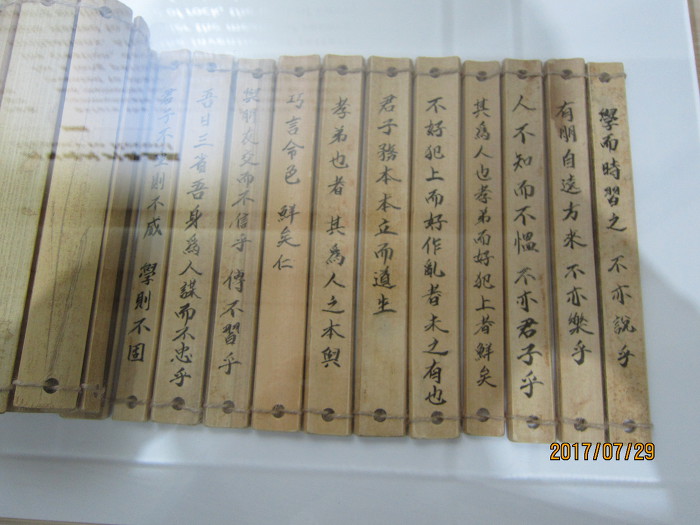 學而時習之 不亦說乎
有朋自遠方来 不亦樂乎
人不知而不慍 不亦君子乎
其為人也孝弟而好犯上者鮮矣
不好犯上而好作亂者未之有也
君子務本本立而道生
孝弟也者 其為人之本與
巧言令色 鮮矣仁
與朋友交而不信乎 傳不習乎
吾日三省吾身為人謀而不忠乎
君子不重則不威 學則不固
2017/07/29